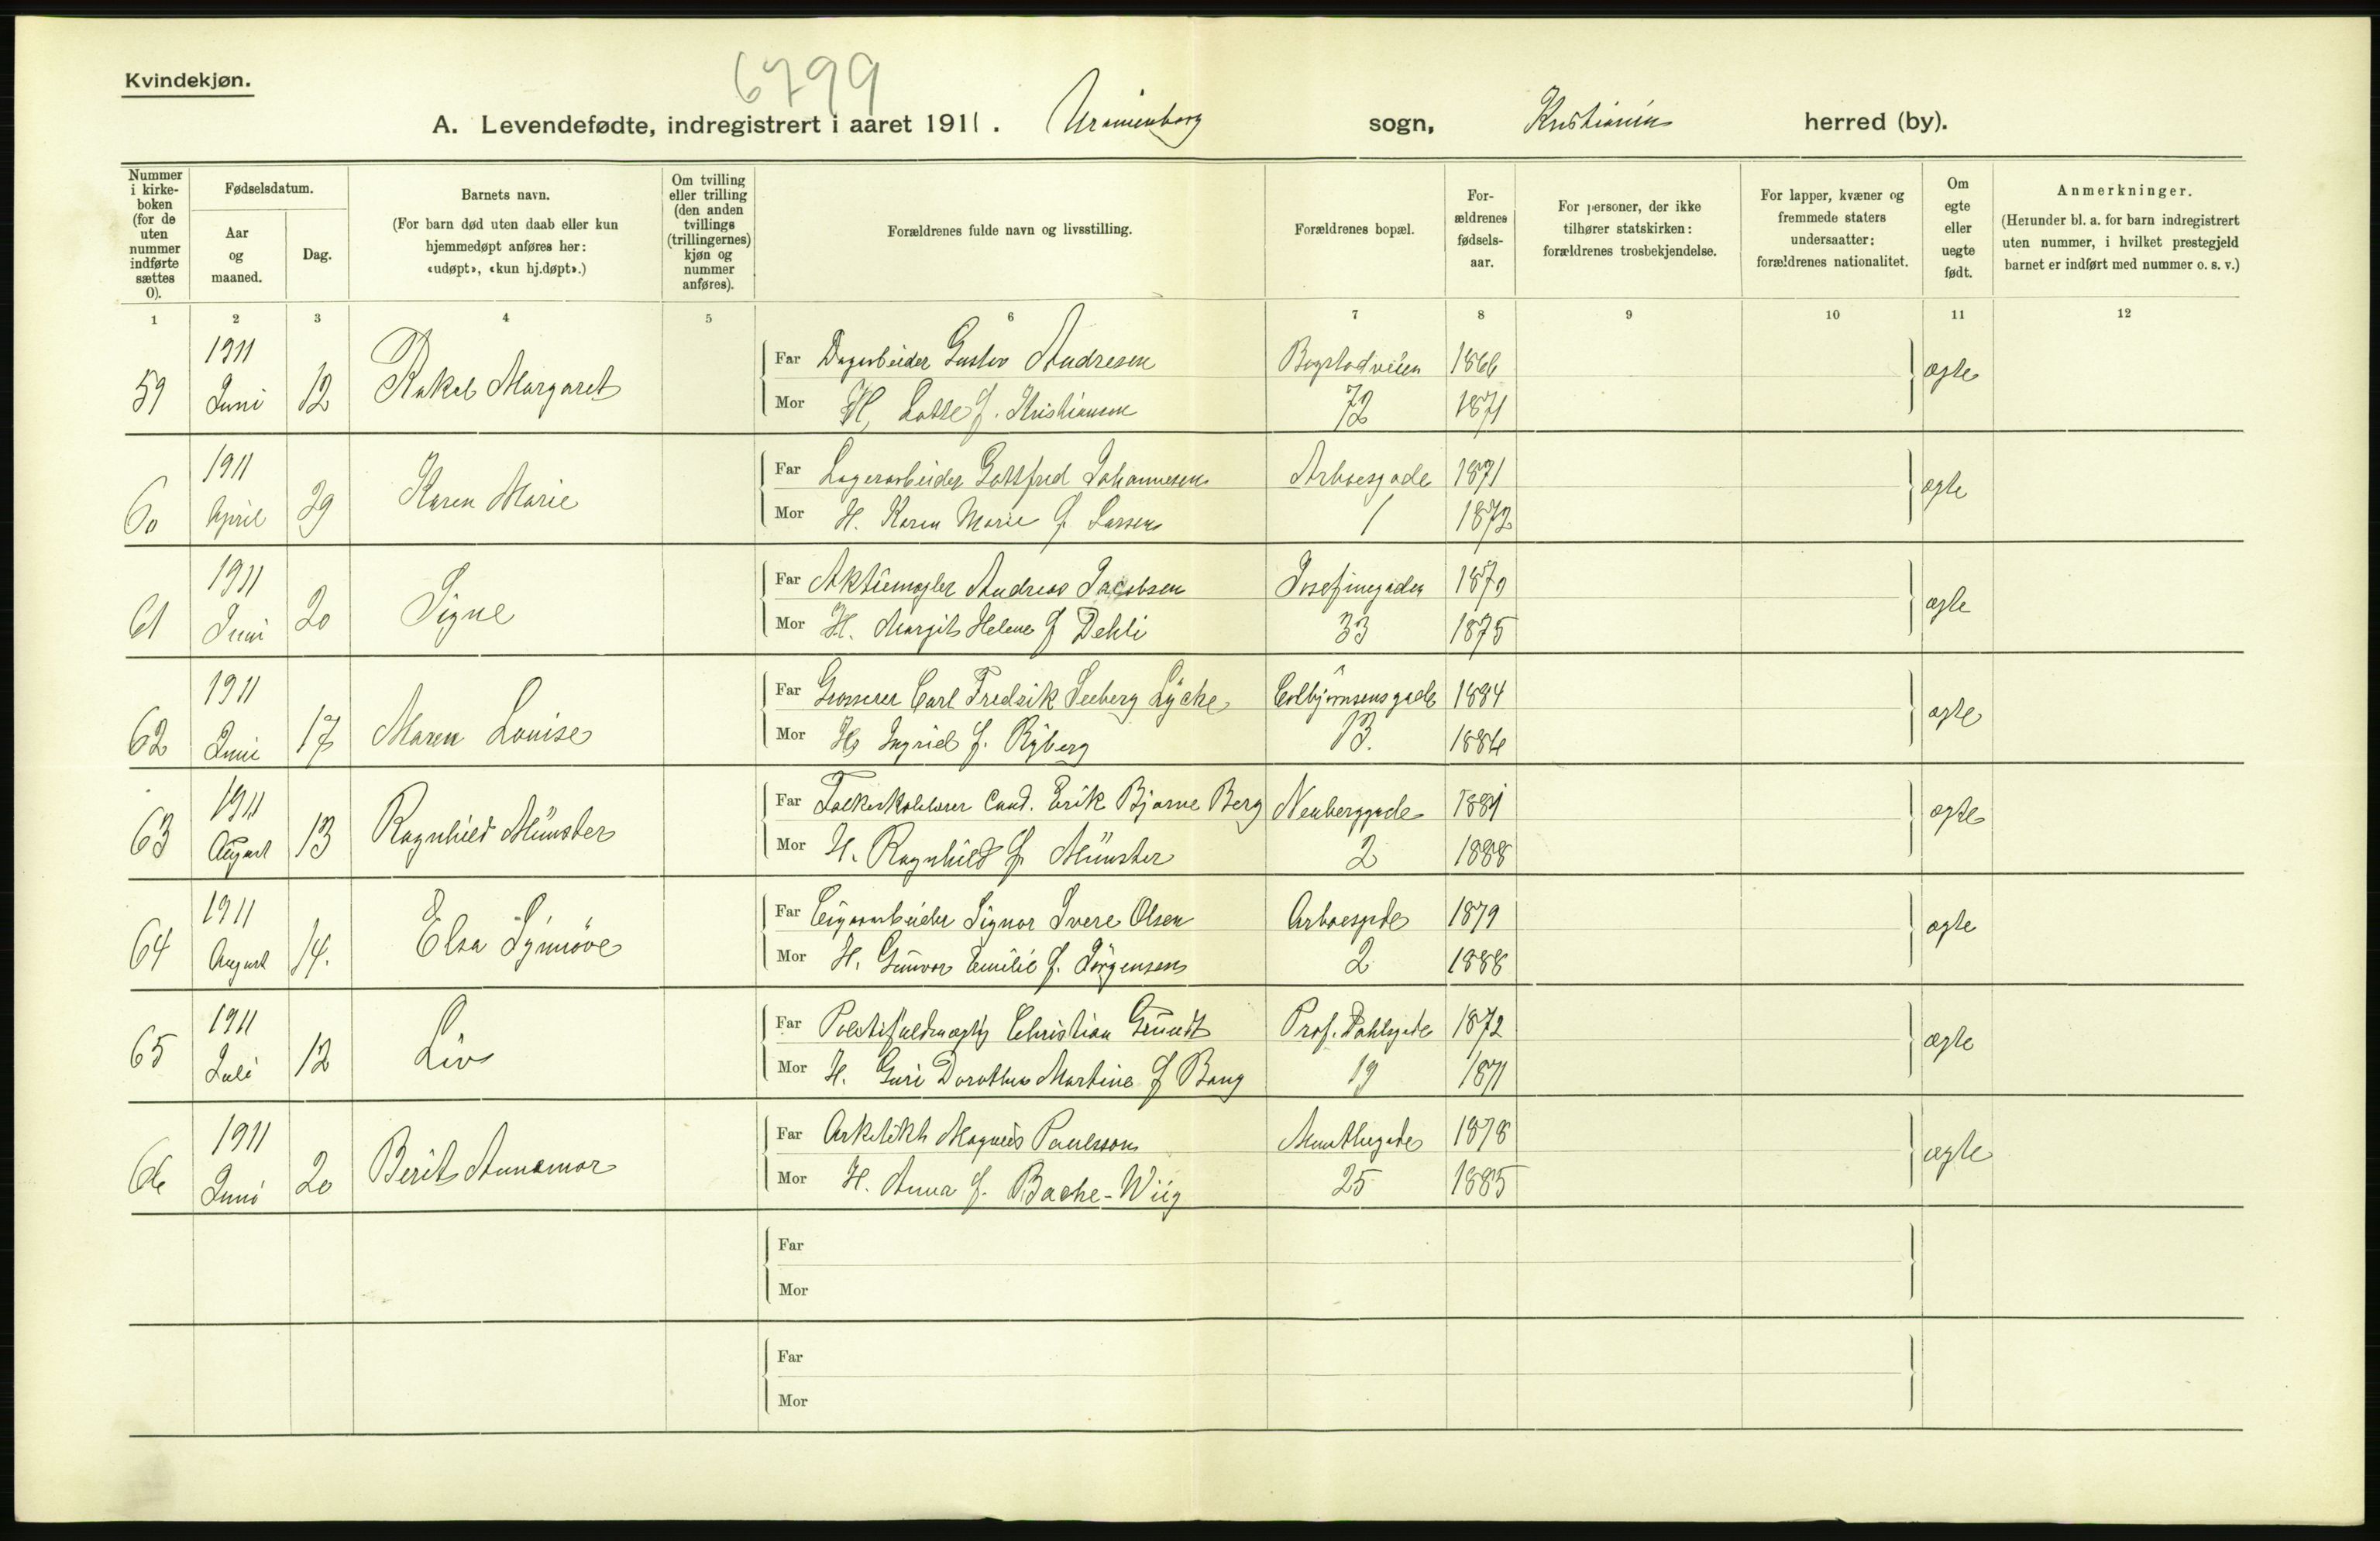 Kvindekjøn.
6799
A. Levendefødte, indregistrert i aaret 1911. Uranienborg sogn, Kristiania herred (by).
Nummer i kirke-boken (for de uten nummer indførte sættes 0).
Fødselsdatum.
Aar og maaned.
Dag.
Barnets navn.
(For barn død uten daab eller kun hjemmedøpt anføres her: «udøpt», «kun hj.døpt».)
Om tvilling eller trilling (den anden tvillings (trillingernes) kjøn og nummer anføres).
Forældrenes fulde navn og livsstilling.
Forældrenes bopæl.
For-ældrenes fødsels-aar.
For personer, der ikke tilhører statskirken: forældrenes trosbekjendelse.
For lapper, kvæner og fremmede staters undersaatter: forældrenes nationalitet.
Om egte eller uegte født.
Anmerkninger.
(Herunder bl. a. for barn indregistrert uten nummer, i hvilket prestegjeld barnet er indført med nummer o. s. v.)
1 2 3 4 5 6 7 8 9 10 11 12
59 1911 Juni 12 Rakel Margaret
Far Dagarbeider Gustav Andresen Bogstadveien 1866 ægte
Mor H. Lotte f. Kristiansen 72 1871
60 1911 April 29 Karen Marie
Far Lagerarbeider Gottfred Johannesen Arboesgade 1871 ægte
Mor H. Karen Marie f. Larsen 1 1872
61 1911 Juni 20 Signe
Far Aktiemægler Andreas Jacobsen Josefinegaden 1870 ægte
Mor H. Margit Helene f Dehli 33 1875
62 1911 Juni 17 Maren Louise
Far Grosserer Carl Fredrik Seeberg Lycke Colbjørnsensgade 1884 ægte
Mor H. Ingrid f. Ryberg 13. 1884
63 1911 August 13 Ragnhild Münster
Far Folkeskolelærer Cand. Erik Bjarne Berg Neuberggade 1881 ægte
Mor H. Ragnhild f. Münster 2 1888
64 1911 August 14. Elsa Synnøve
Far Cigararbeider Signor Svere Olsen Arboesgade 1879 ægte
Mor H. Gunvor Emilie f. Jørgensen 2 1888
65 1911 Juli 12 Liv
Far Politifuldmægtig Christian Grundt Prof. Dahlsgade 1872 ægte
Mor H. Guri Dorothea Martine f Bang 19 1871
66 1911 Juni 20 Berit Annemor
Far Arkitekt Magnus Poulsson Munthesgade 1878 ægte
Mor H. Anna f. Bache-Wiig 25 1885
Far
Mor
Far
Mor